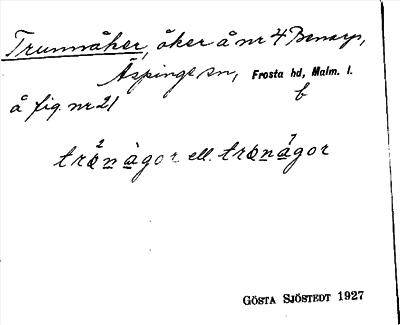 Trunnåker, åker å nr 4 Benarp,
Äspinge sn, Frosta hd, Malm. l.
b
å fig. nr 21
ell.
GÖSTA SJÖSTEDT 1927